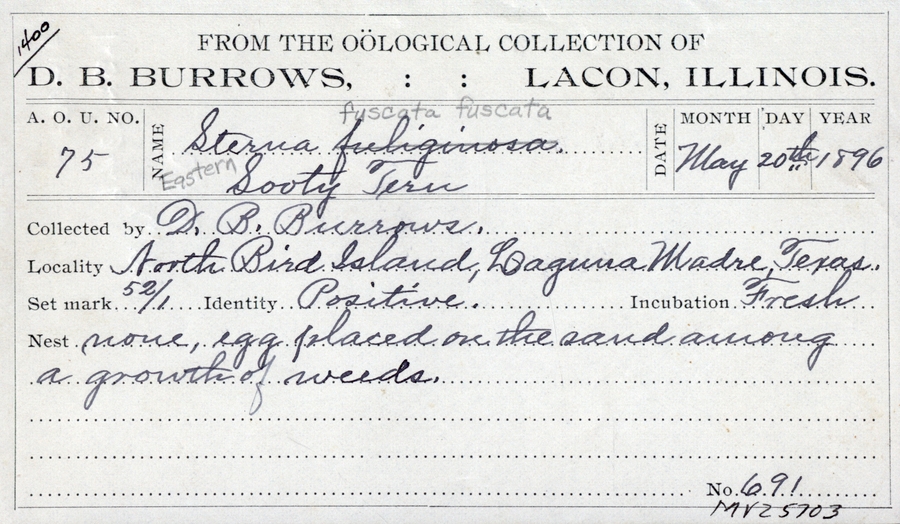 1400
FROM THE OÖLOGICAL COLLECTION OF
D. B. BURROWS, : : LACON, ILLINOIS.
fuscata fuscata
A. O. U. NO. NAME DATE MONTH DAY YEAR
75 Sterna fuliginosa. May 20th 1896
Eastern Sooty Tern
Collected by D. B. Burrows.
Locality North Bird Island, Laguna Madre, Texas.
Set mark 52/1 Identity Positive. Incubation Fresh
Nest none, egg placed on the sand among
a growth of weeds.
No. 691
MVZ 5703